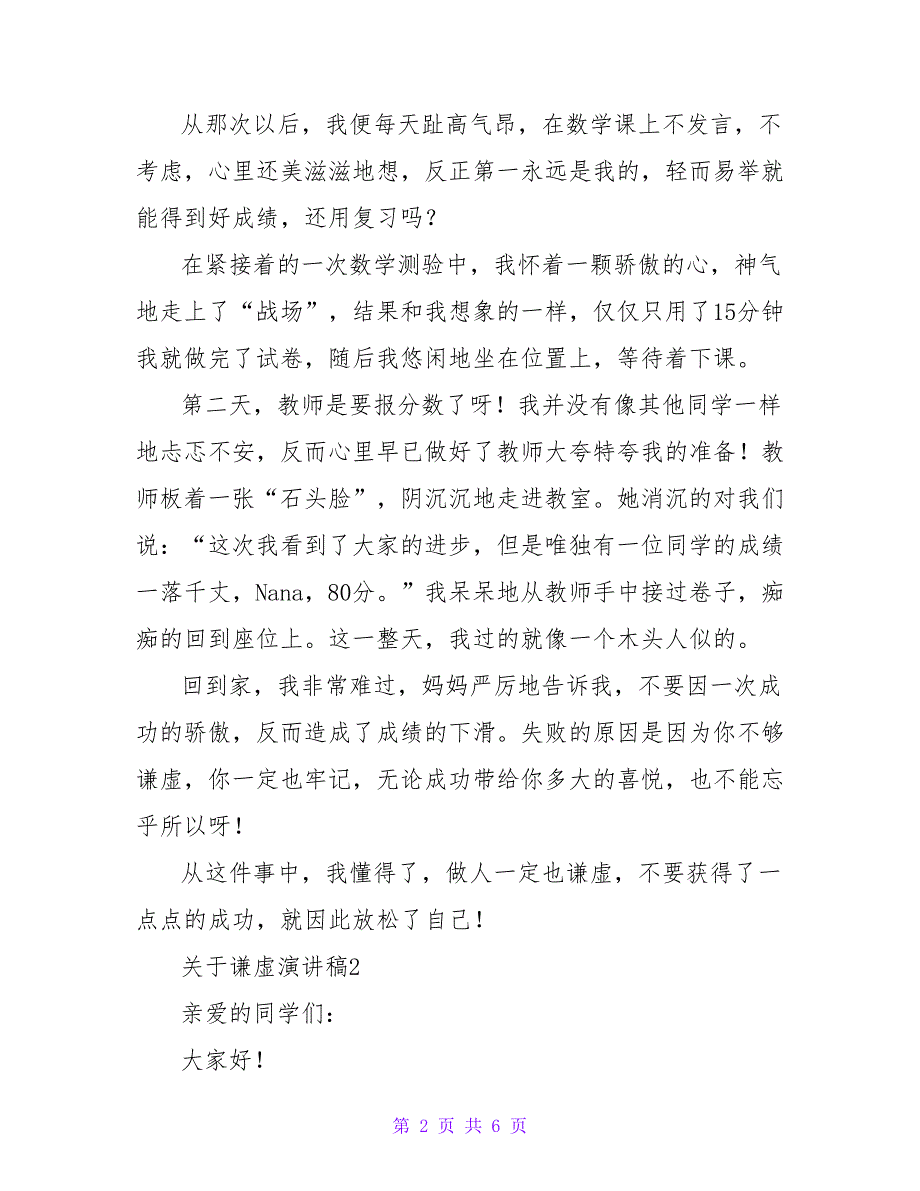 从那次以后，我便每天趾高气昂，在数学课上不发言，不
考虑，心里还美滋滋地想，反正第一永远是我的，轻而易举就
能得到好成绩，还用复习吗？
在紧接着的一次数学测验中，我怀着一颗骄傲的心，神气
地走上了“战场”，结果和我想象的一样，仅仅只用了15分钟
我就做完了试卷，随后我悠闲地坐在位置上，等待着下课。
第二天，教师是要报分数了呀！我并没有像其他同学一样
地忐忑不安，反而心里早已做好了教师大夸特夸我的准备！教
师板着一张“石头脸”，阴沉沉地走进教室。她消沉的对我们
说：“这次我看到了大家的进步，但是唯独有一位同学的成绩
一落千丈，Nana，80分。”我呆呆地从教师手中接过卷子，痴
痴的回到座位上。这一整天，我过的就像一个木头人似的。
回到家，我非常难过，妈妈严厉地告诉我，不要因一次成
功的骄傲，反而造成了成绩的下滑。失败的原因是因为你不够
谦虚，你一定也牢记，无论成功带给你多大的喜悦，也不能忘
乎所以呀！
从这件事中，我懂得了，做人一定也谦虚，不要获得了一
点点的成功，就因此放松了自己！
关于谦虚演讲稿2
亲爱的同学们：
大家好！
第 2 页 共 6 页